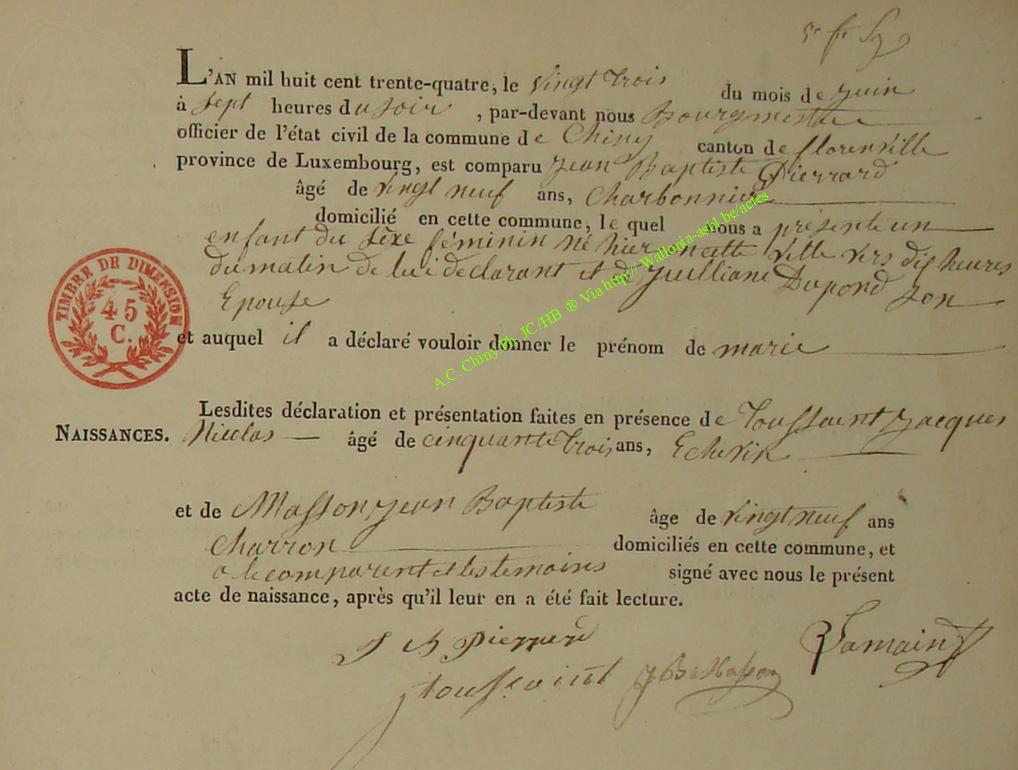 L'AN mil huit cent trente-quatre, le vingt trois du mois de juin
à sept heures du soir , par-devant nous Bourgmestre
officier de l'état civil de la commune de Chiny canton de florenville
province de Luxembourg, est comparu jean Baptiste Pierrard
âgé de vingt neuf ans, Charbonnier
domicilié en cette commune, le quel nous a présenté un
enfant du sèxe féminin né hier cette ville vers dix heures
du matin de lui declarant et de Juilliane Dupond son
Epouse
et auquel il a déclaré vouloir donner le prénom de marie
TIMBRE DE DIMENSION
45
C.
A.C. Chiny Ph. JC /HB ® Via http// Wallonia-asbl.be/actes
Lesdites déclaration et présentation faites en présence de Toussaint jacques
NAISSANCES. Nicolas âgé de cinquante trois ans, Echevin
et de Masson jean Baptiste âge de vingt neuf ans
Charron domiciliés en cette commune, et
le comparent et les temoins signé avec nous le présent
acte de naissance, après qu'il leur en a été fait lecture.
J B Pierrard
Lamain
j toussaint J B Masson